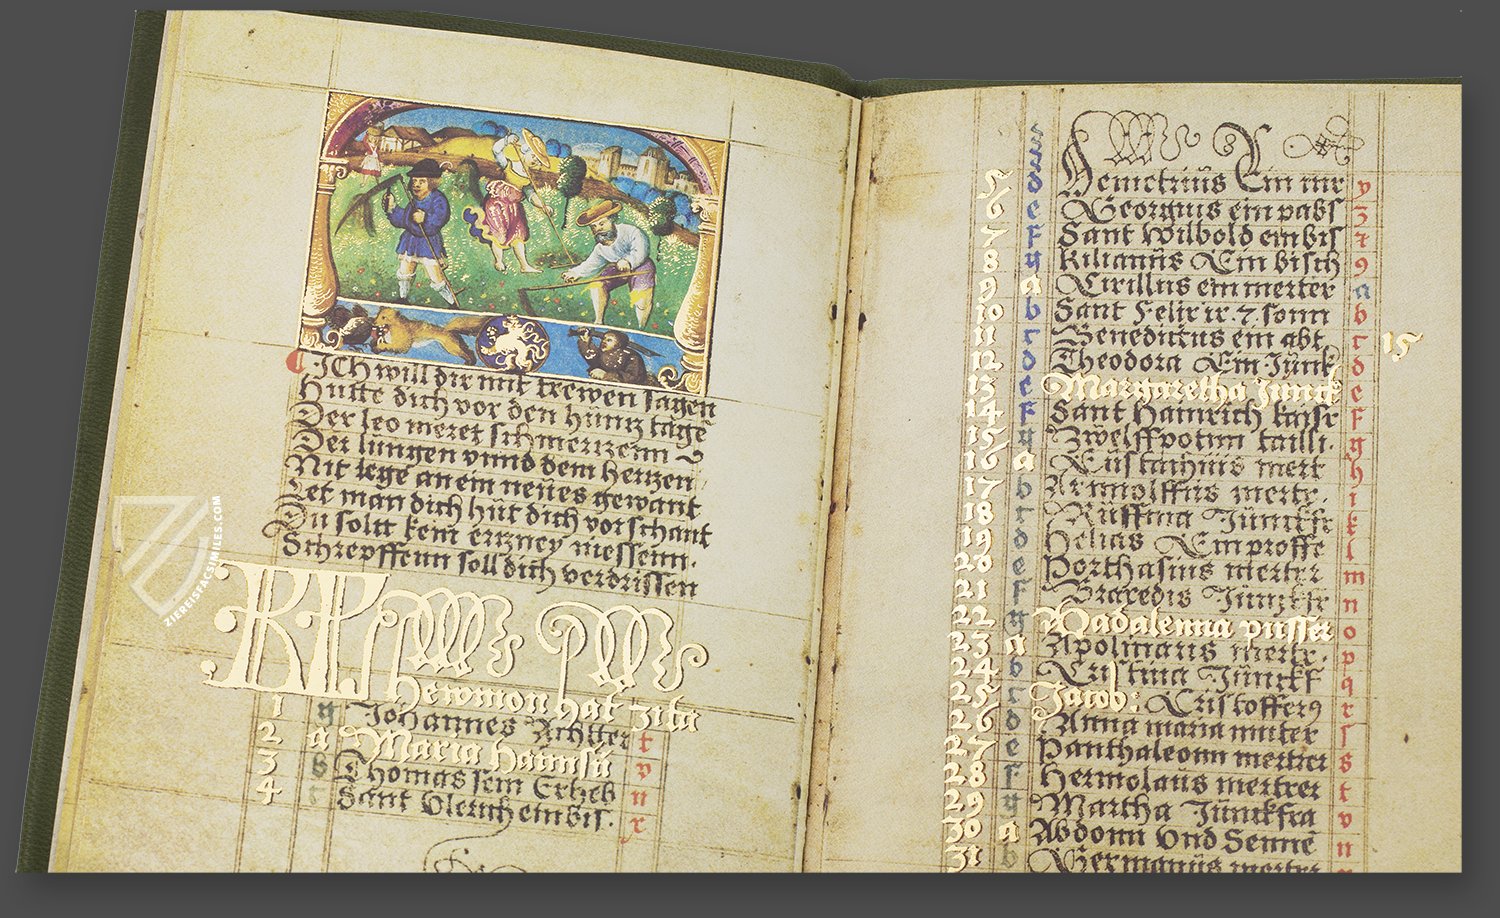 Ich will dir mit trewen sagen
Hutte dich vor den hunz tage
Der leo meret schmerzenn
Der lungen vnnd dem herzen
Nit lege an ein neues gewant
Let man dich hut dich vorschant
Du solt kein erzney niessenn.
Schrepffenn soll dich verdrissen
hewmon hat zita
1 g Johannes t
2 a Maria v
3 b Thomas sein u
4 c Sant Vlerich ein bis. x
5 d Demetrius Ein mr y
6 e Georgius ein pabs z
7 f Sant Wilbold ein bis
8 g Kilianus Ein bisch 9
9 a Cirillus ein merter a
10 b Sant Felix b
11 c Benedictus ein abt c
12 d Theodora Ein Junk d 15
13 e Margaretha Junck e
14 f Sant Hainrich kaisr f
15 g Zwelffpotten g
16 a Eustachius mert h
17 b Arnnolffus mertr. i
18 c Ruffina Junckfr k
19 d Helias Ein proffe l
20 e Porthasius mertrer m
21 f Braxedis Junckfr n
22 g Madalenna pusser o
23 a Apolinaris mertr. p
24 b Cristina Junckf q
25 c Jacob: Cristoffer9 r
26 d Anna maria muter s
27 e Panthaleonn mertrer s
28 f Hermolaus mertrer t
29 g Martha Junckfra v
30 a Abdonn Vnd Senne u
31 b Germanus mertrer
ZIEREISFACSIMILES.COM